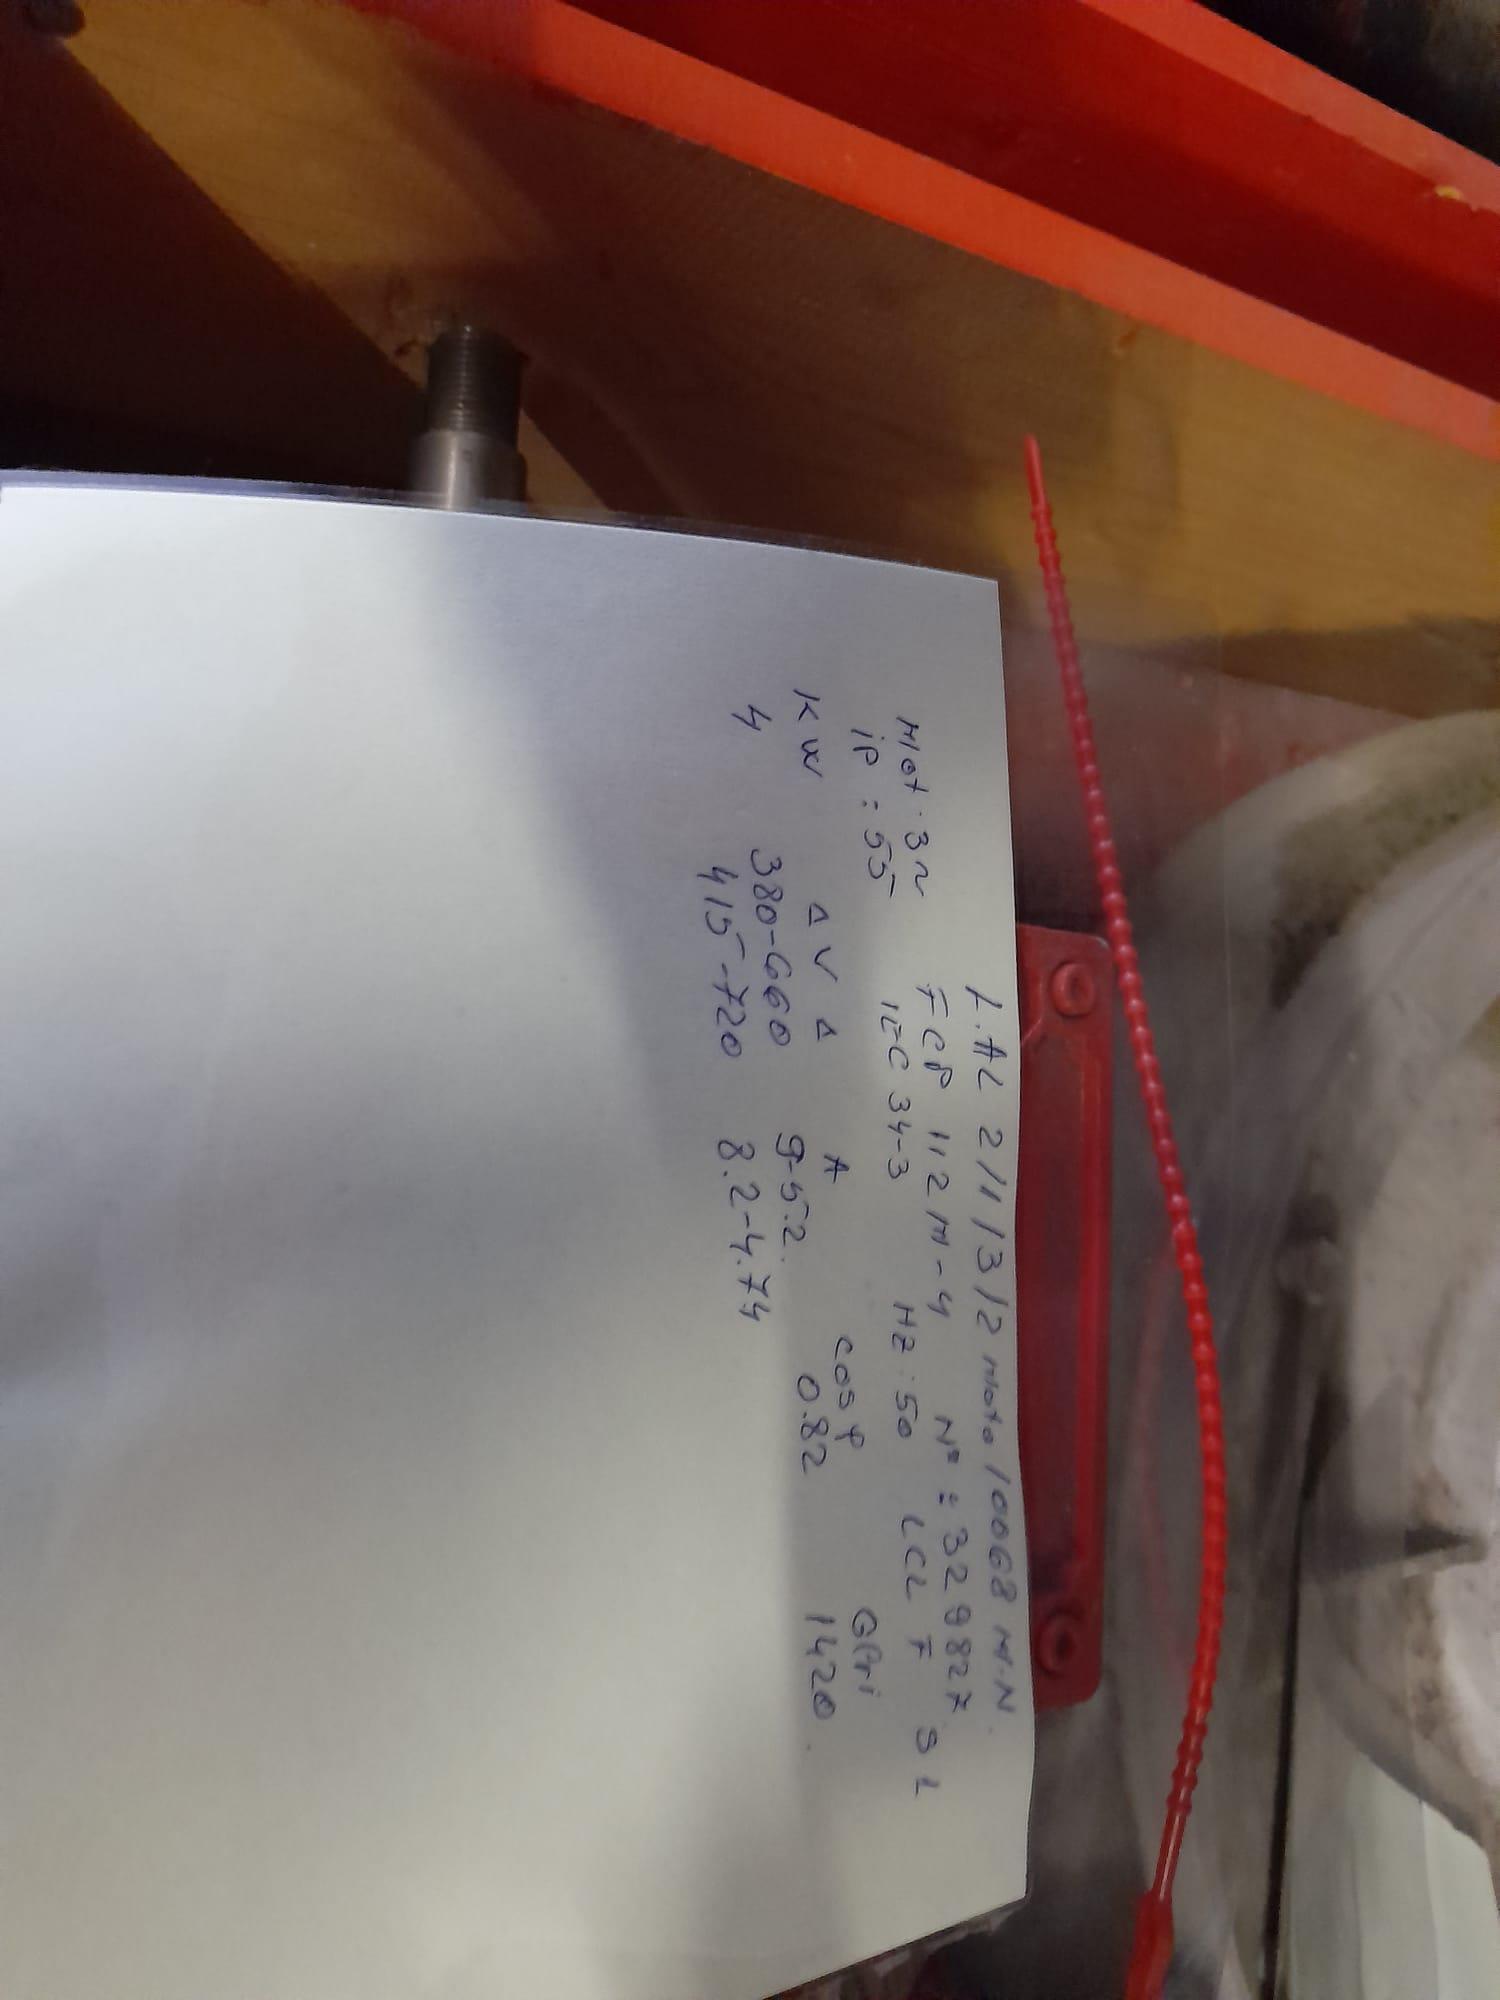 L.AL 2/1/3/2 moto 10068 M.N.
Mot. 3~ FCP 112M-4 N° : 329827
iP : 55 IEC 34-3 HZ : 50 LCL F SL
KW Δ V Δ A cos φ Giri
4 380-660 9-5.2 0.82 1420
415-720 8.2-4.74